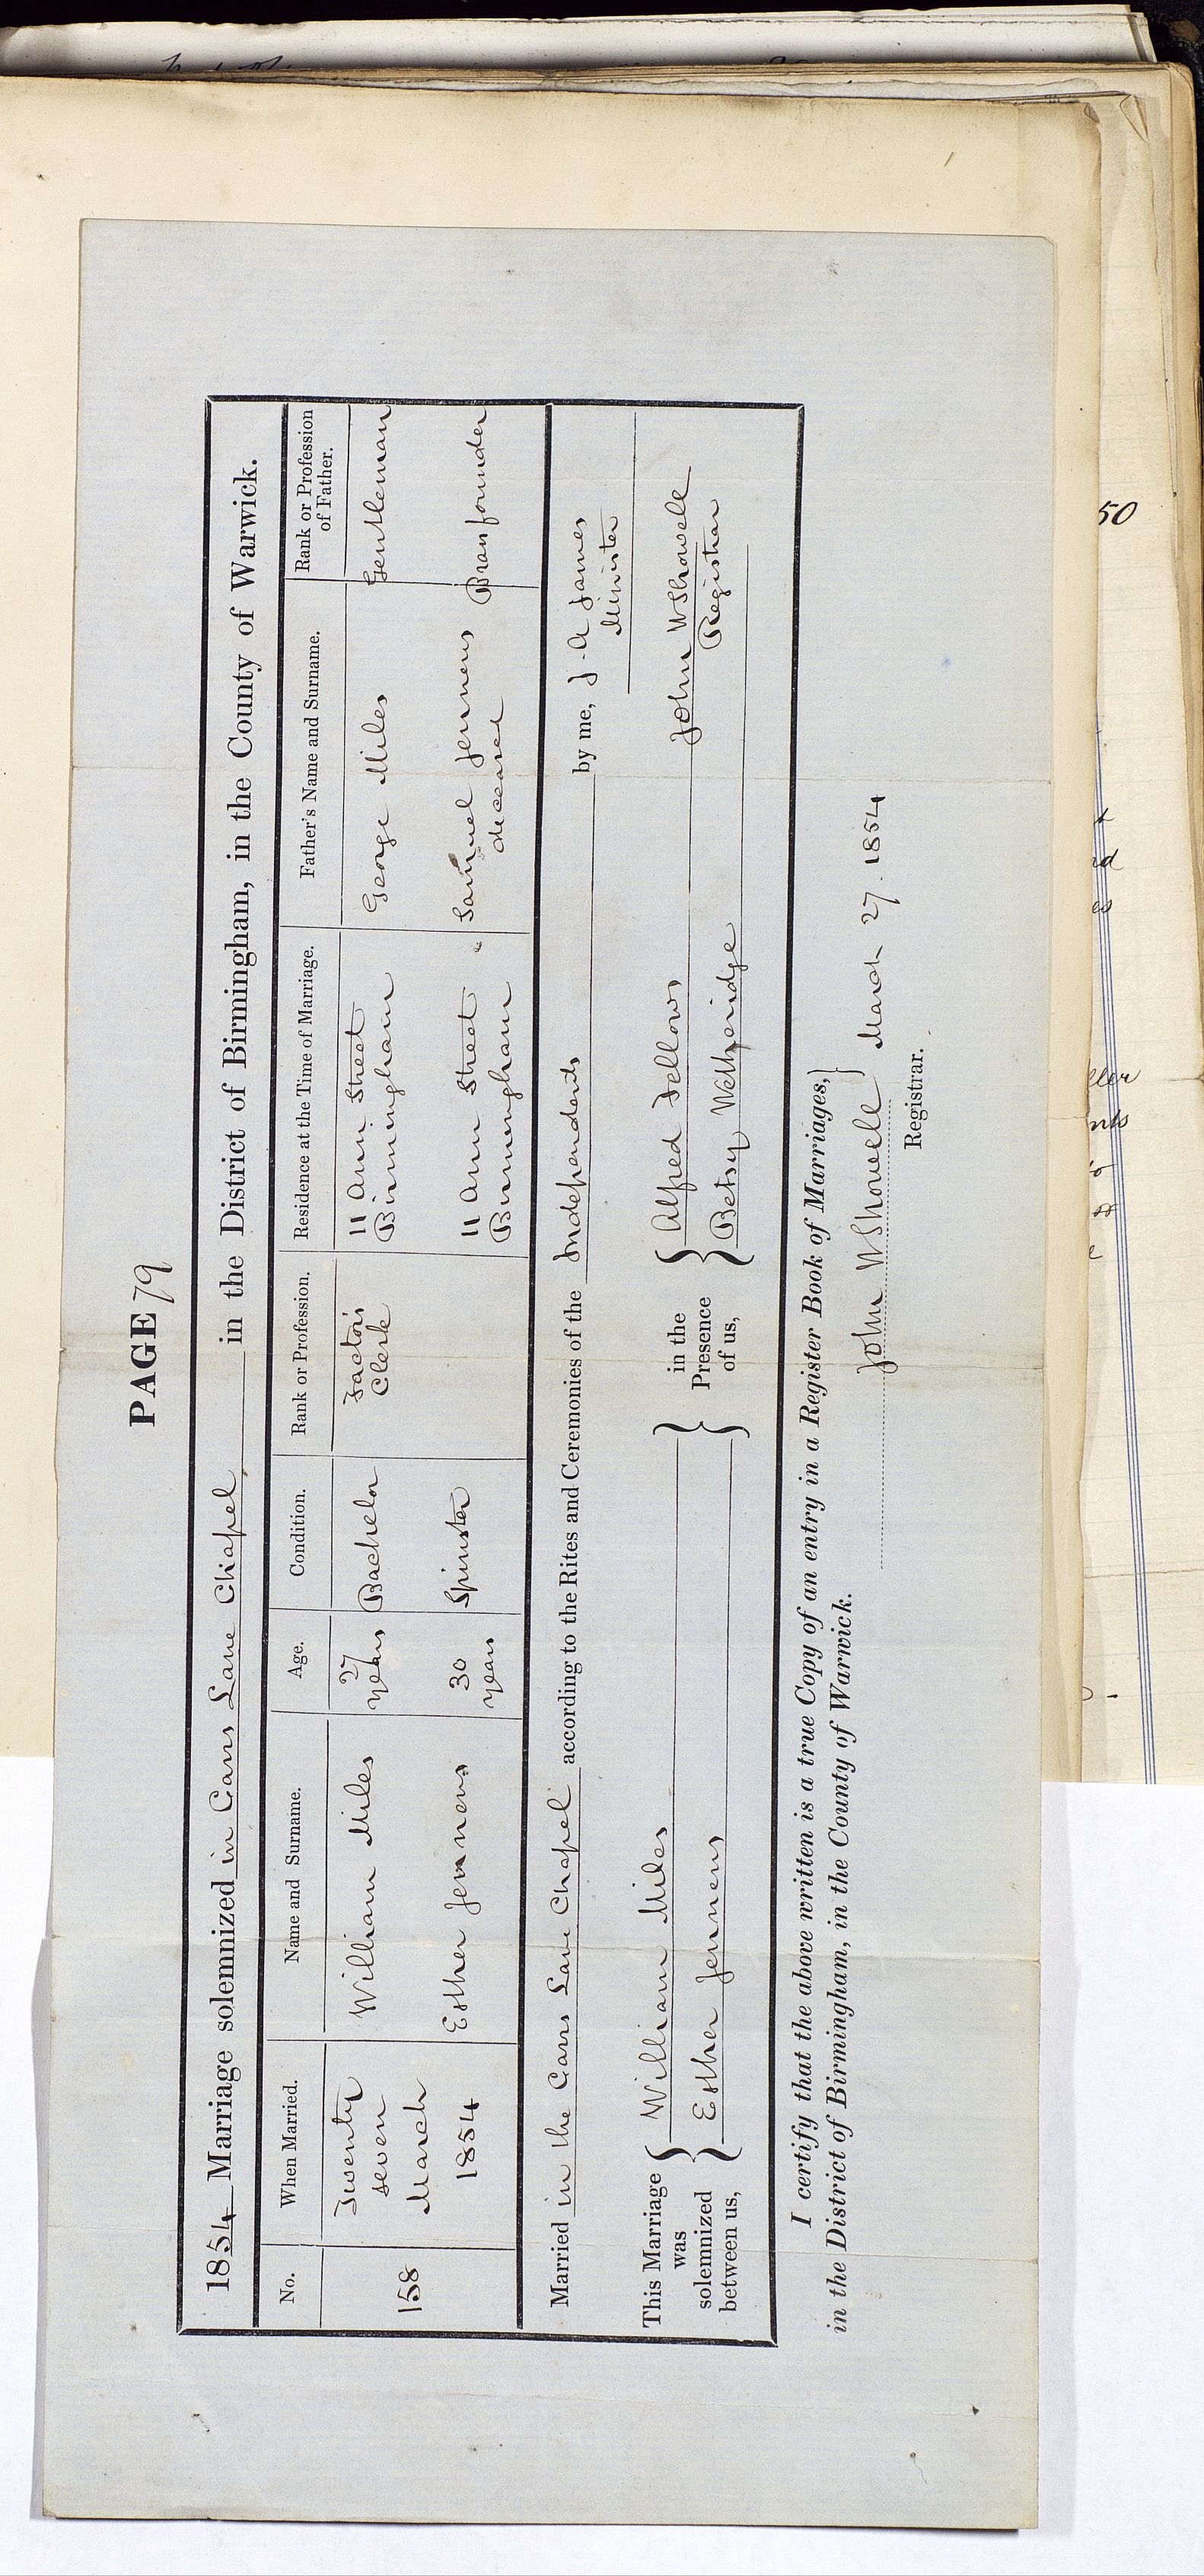 PAGE 79
1854 Marriage solemnized in Carrs Lane Chapel in the District of Birmingham, in the County of Warwick.
No. When Married. Name and Surname. Age. Condition. Rank or Profession. Residence at the Time of Marriage. Father's Name and Surname. Rank or Profession of Father.
158 Twenty seven March 1854 William Miles 27 years Bachelor Factor's Clerk 11 Ann Street Birmingham George Miles Gentleman
Esther Jennens 30 years Spinster 11 Ann Street Birmingham Samuel Jennens deceased Brassfounder
Married in the Carrs Lane Chapel according to the Rites and Ceremonies of the Independents by me, J. A James
Minister
This Marriage was solemnized between us, William Miles in the Presence of us, Alfred Fellows John W Showell
Esther Jennens Betsy Wetheridge Registrar
I certify that the above written is a true Copy of an entry in a Register Book of Marriages,
in the District of Birmingham, in the County of Warwick.
John W Showell March 27. 1854
Registrar.
50